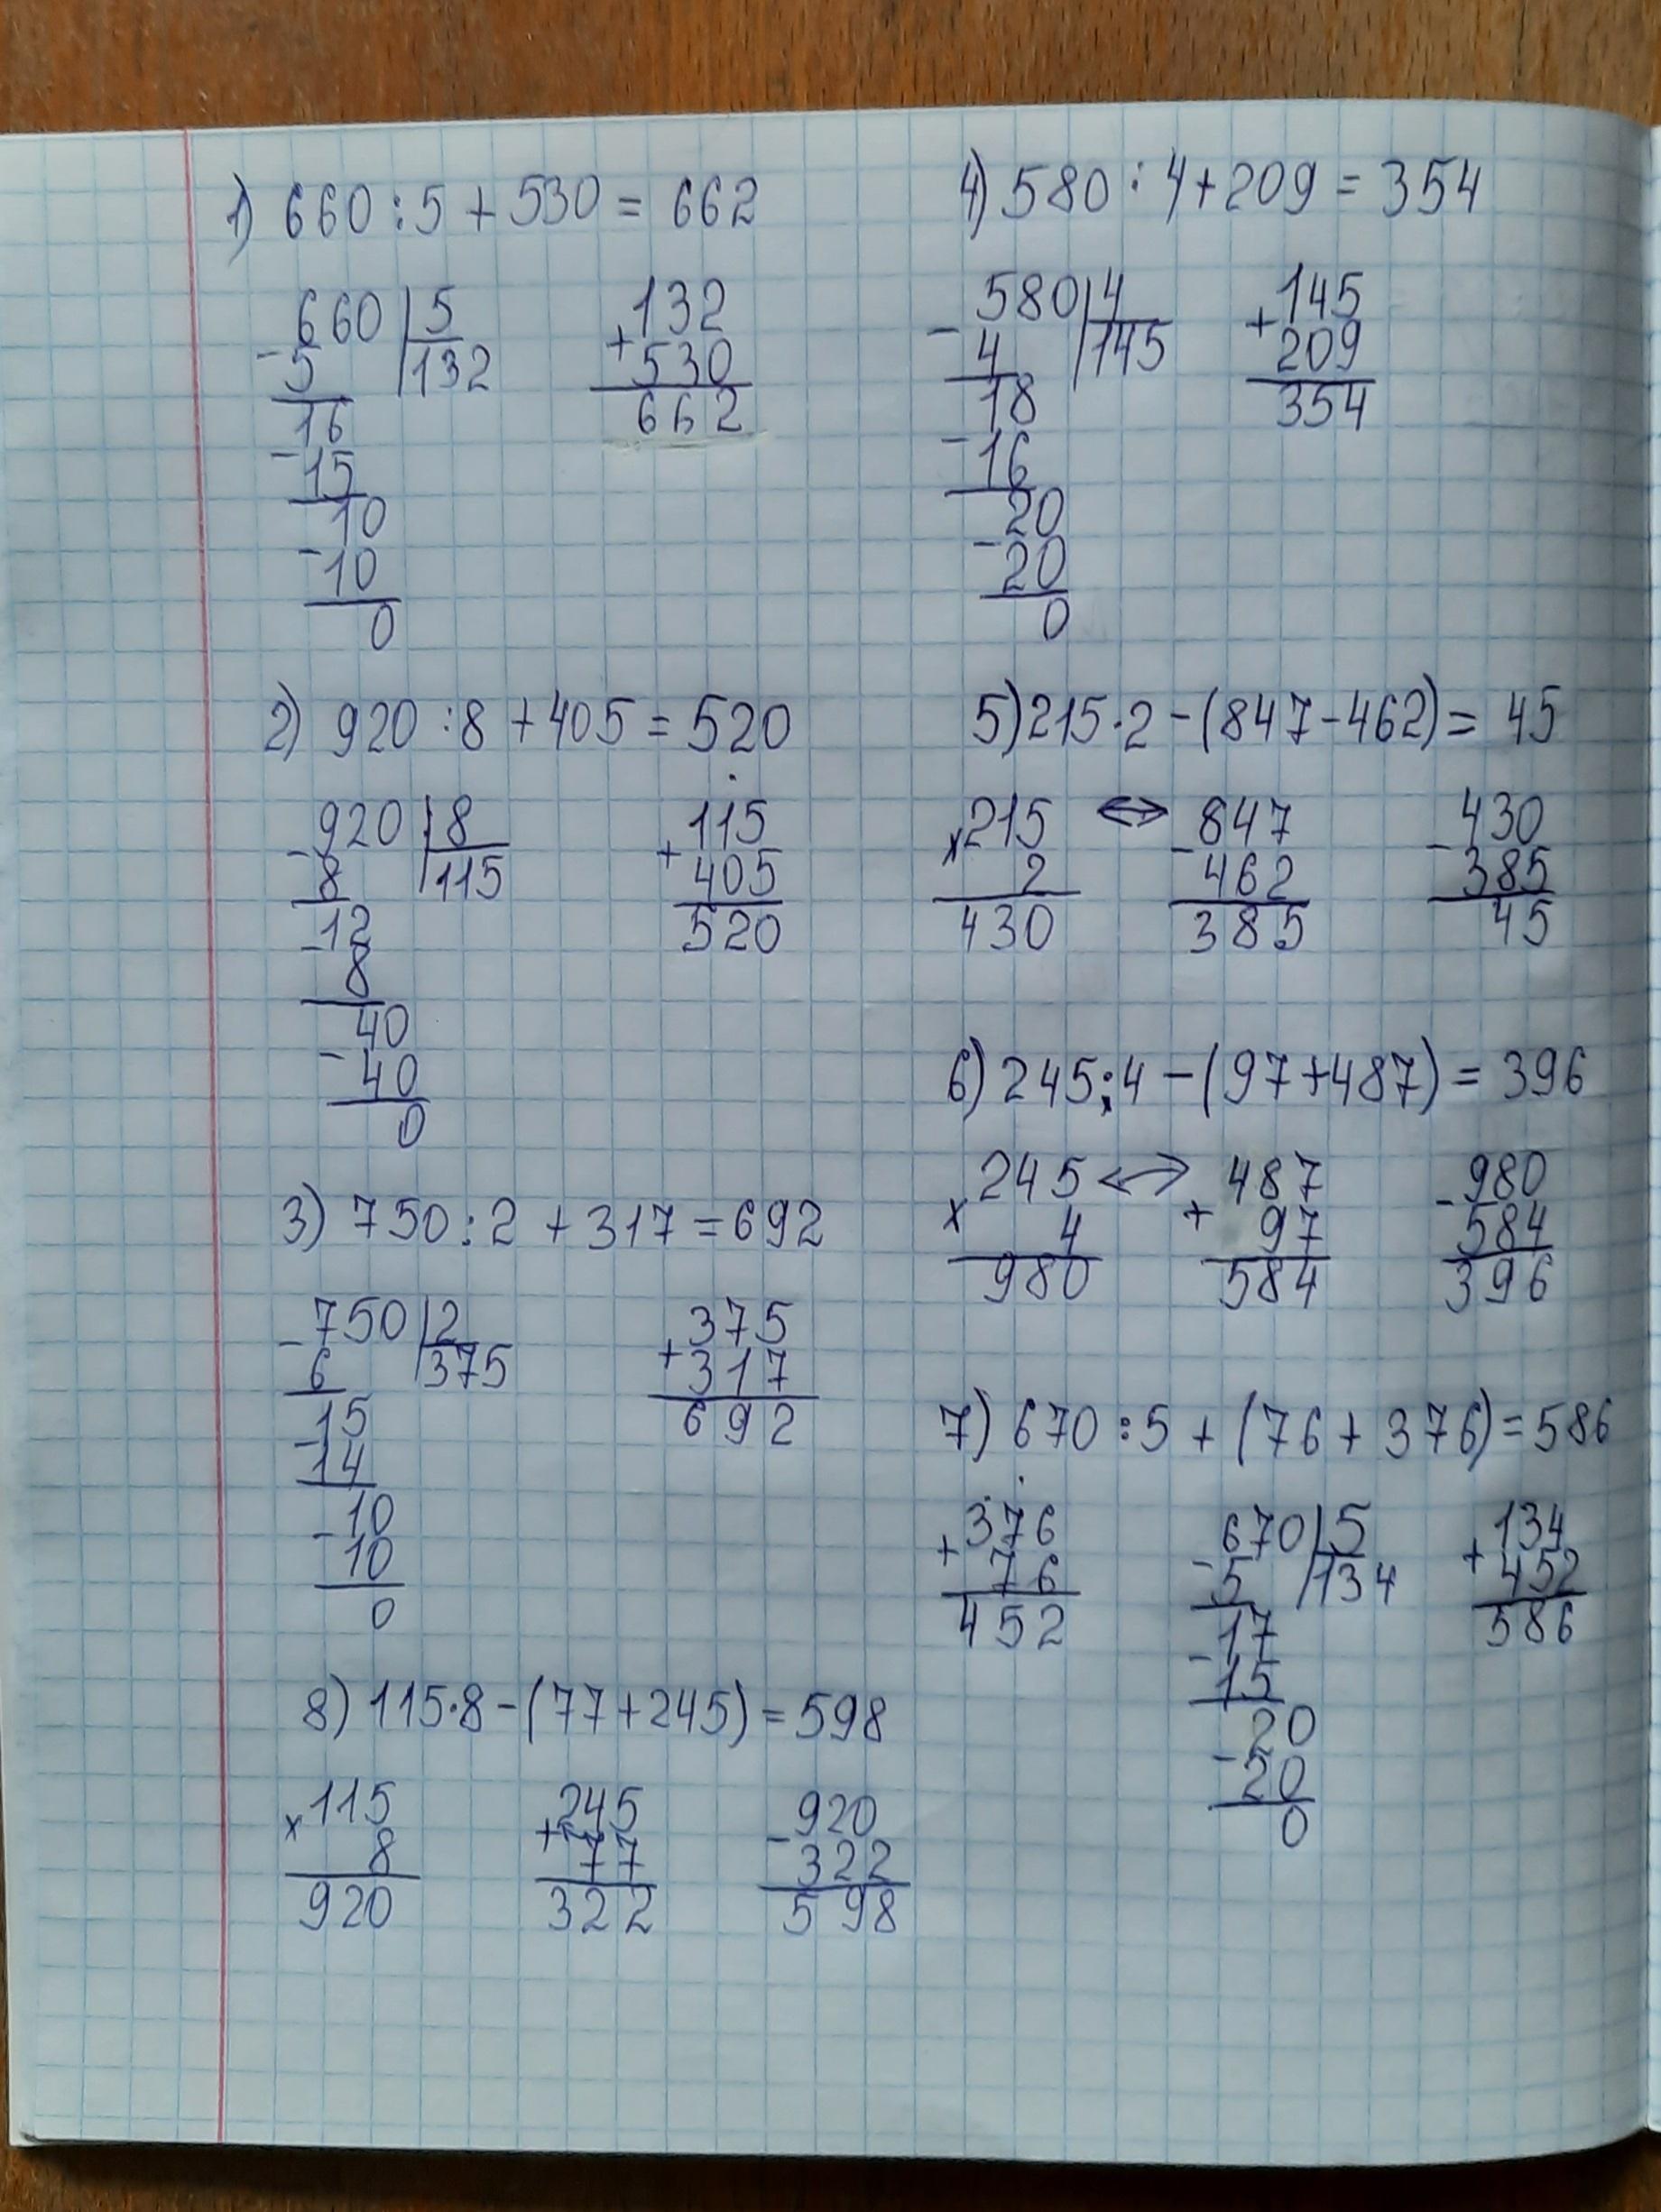 1) 660 : 5 + 530 = 662
- 660 | 5
5 | 132
16
- 15
10
- 10
0
+ 132
530
662
2) 920 : 8 + 405 = 520
- 920 | 8
8 | 115
- 12
8
40
- 40
0
+ 115
405
520
3) 750 : 2 + 317 = 692
- 750 | 2
6 | 375
- 15
14
- 10
10
0
+ 375
317
692
8) 115·8 - (77 + 245) = 598
x 115
8
920
+ 245
77
322
- 920
322
598
4) 580 : 4 + 209 = 354
- 580 | 4
4 | 145
18
- 16
20
- 20
0
+ 145
209
354
5) 215·2 - (847 - 462) = 45
x 215 ↔
2
430
- 847
462
385
- 430
385
45
6) 245 : 4 - (97 + 487) = 396
x 245 ↔
4
980
+ 487
97
584
- 980
584
396
7) 670 : 5 + (76 + 376) = 586
+ 376
76
452
- 670 | 5
5 | 134
17
- 15
20
- 20
0
+ 134
452
586